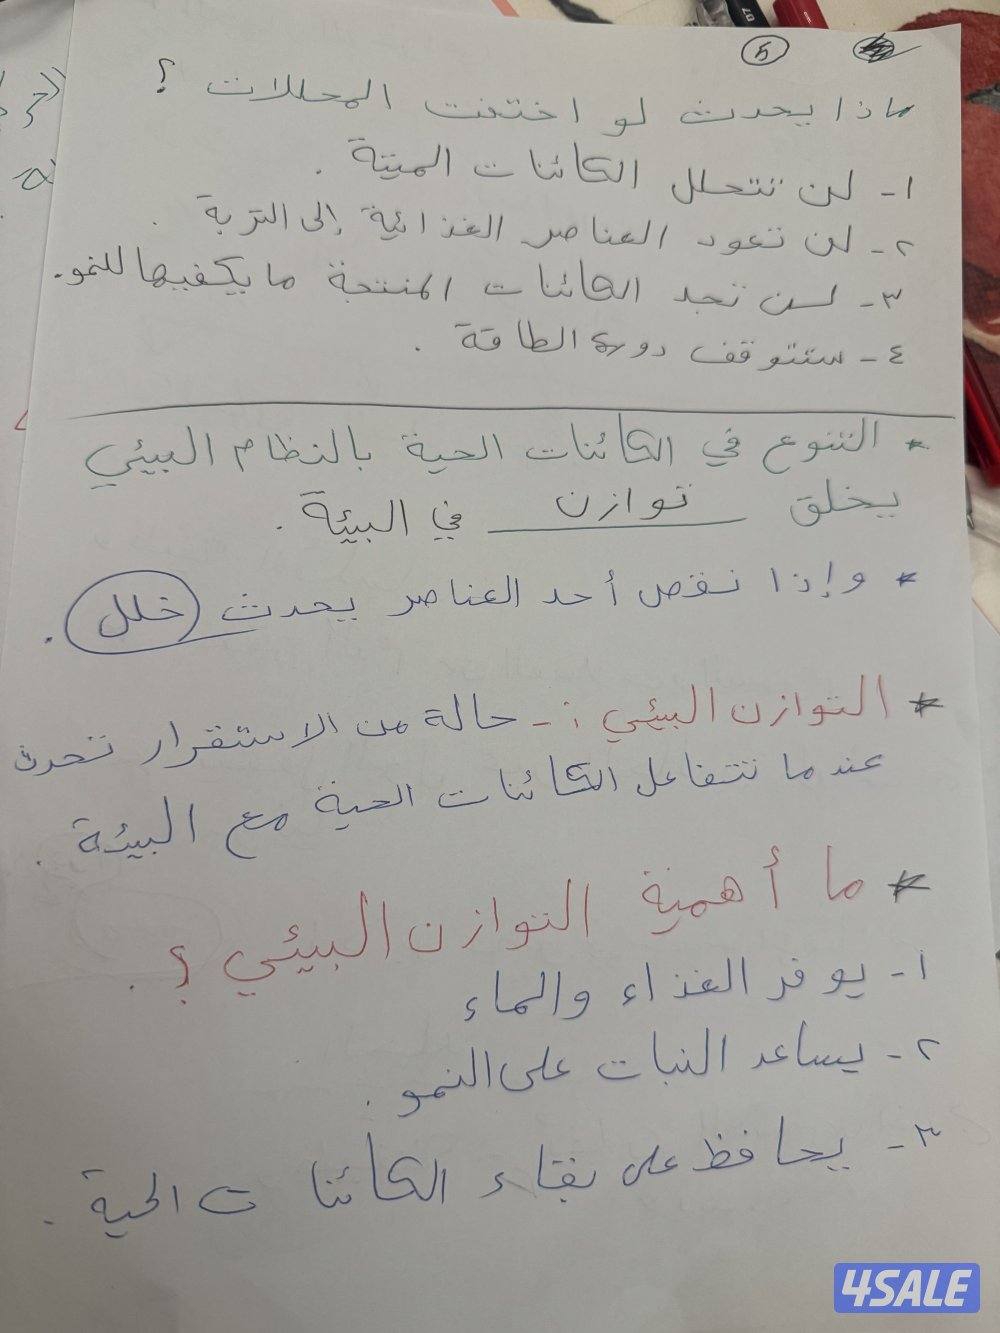 ٥
ماذا يحدث لو اختفت المحللات ؟
١- لن تتحلل الكائنات الميتة .
٢- لن تعود العناصر الغذائية إلى التربة .
٣- لن تجد الكائنات المنتجة ما يكفيها للنمو.
٤- ستتوقف دورة الطاقة .
* التنوع في الكائنات الحية بالنظام البيئي
يخلق توازن في البيئة .
* وإذا نقص أحد العناصر يحدث خلل .
* التوازن البيئي :- حالة من الاستقرار تحدث
عندما تتفاعل الكائنات الحية مع البيئة .
* ما أهمية التوازن البيئي ؟ .
١- يوفر الغذاء والماء
٢- يساعد النبات على النمو .
٣- يحافظ على بقاء الكائنات الحية .
4SALE